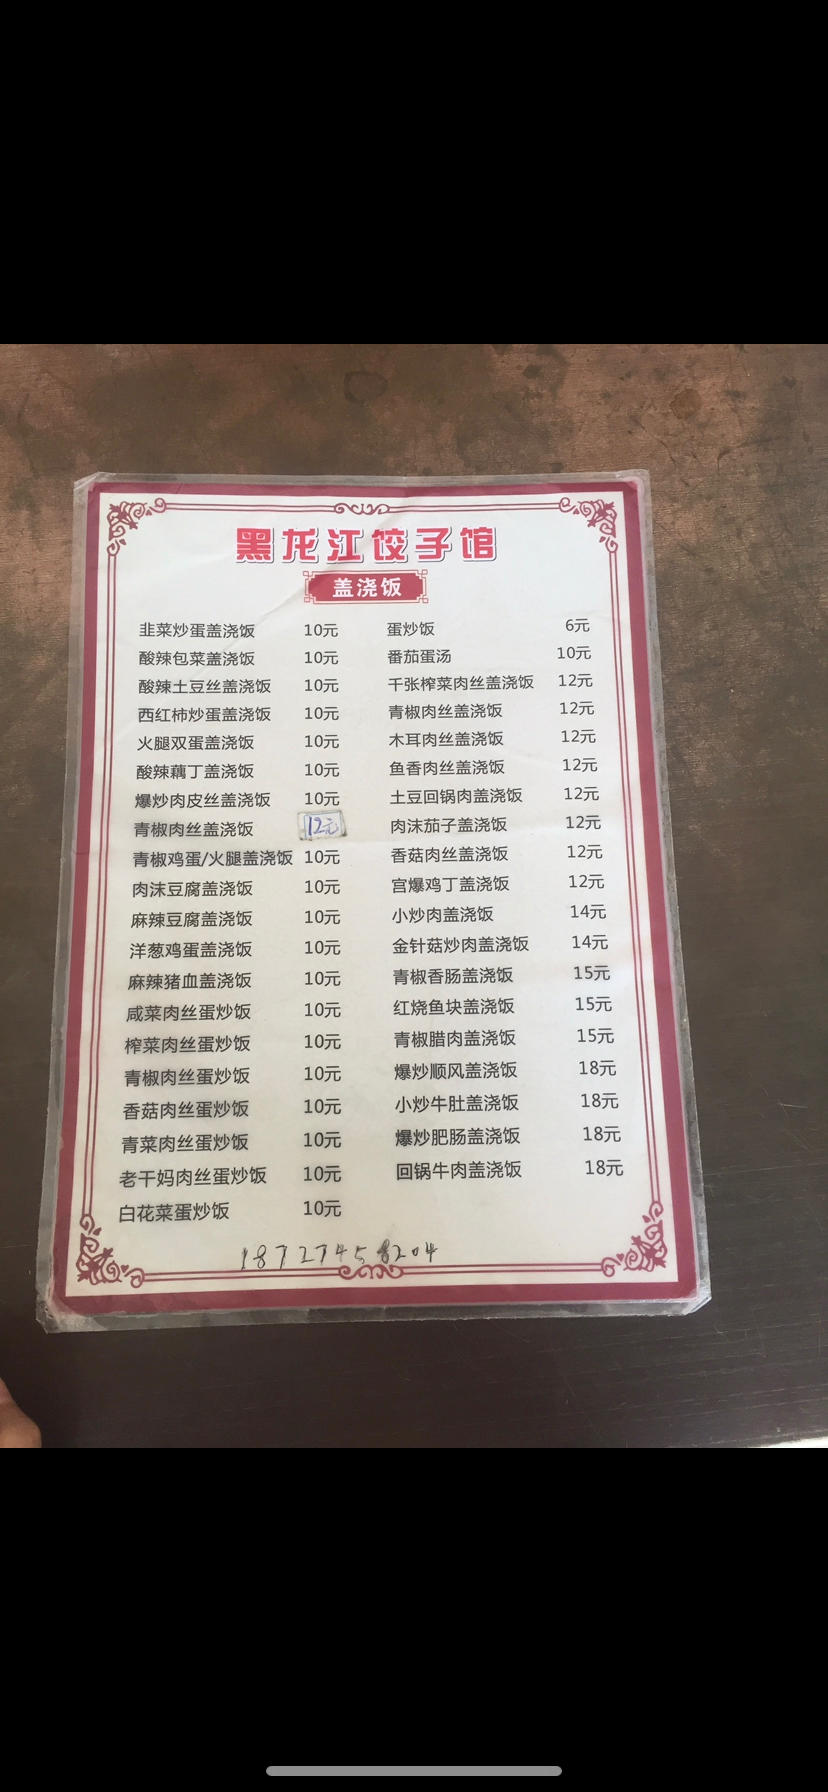 黑龙江饺子馆
盖浇饭
韭菜炒蛋盖浇饭 10元
酸辣包菜盖浇饭 10元
酸辣土豆丝盖浇饭 10元
西红柿炒蛋盖浇饭 10元
火腿双蛋盖浇饭 10元
酸辣藕丁盖浇饭 10元
爆炒肉皮丝盖浇饭 10元
青椒肉丝盖浇饭 12元
青椒鸡蛋/火腿盖浇饭 10元
肉沫豆腐盖浇饭 10元
麻辣豆腐盖浇饭 10元
洋葱鸡蛋盖浇饭 10元
麻辣猪血盖浇饭 10元
咸菜肉丝蛋炒饭 10元
榨菜肉丝蛋炒饭 10元
青椒肉丝蛋炒饭 10元
香菇肉丝蛋炒饭 10元
青菜肉丝蛋炒饭 10元
老干妈肉丝蛋炒饭 10元
白花菜蛋炒饭 10元
蛋炒饭 6元
番茄蛋汤 10元
千张榨菜肉丝盖浇饭 12元
青椒肉丝盖浇饭 12元
木耳肉丝盖浇饭 12元
鱼香肉丝盖浇饭 12元
土豆回锅肉盖浇饭 12元
肉沫茄子盖浇饭 12元
香菇肉丝盖浇饭 12元
宫爆鸡丁盖浇饭 12元
小炒肉盖浇饭 14元
金针菇炒肉盖浇饭 14元
青椒香肠盖浇饭 15元
红烧鱼块盖浇饭 15元
青椒腊肉盖浇饭 15元
爆炒顺风盖浇饭 18元
小炒牛肚盖浇饭 18元
爆炒肥肠盖浇饭 18元
回锅牛肉盖浇饭 18元
18727458204